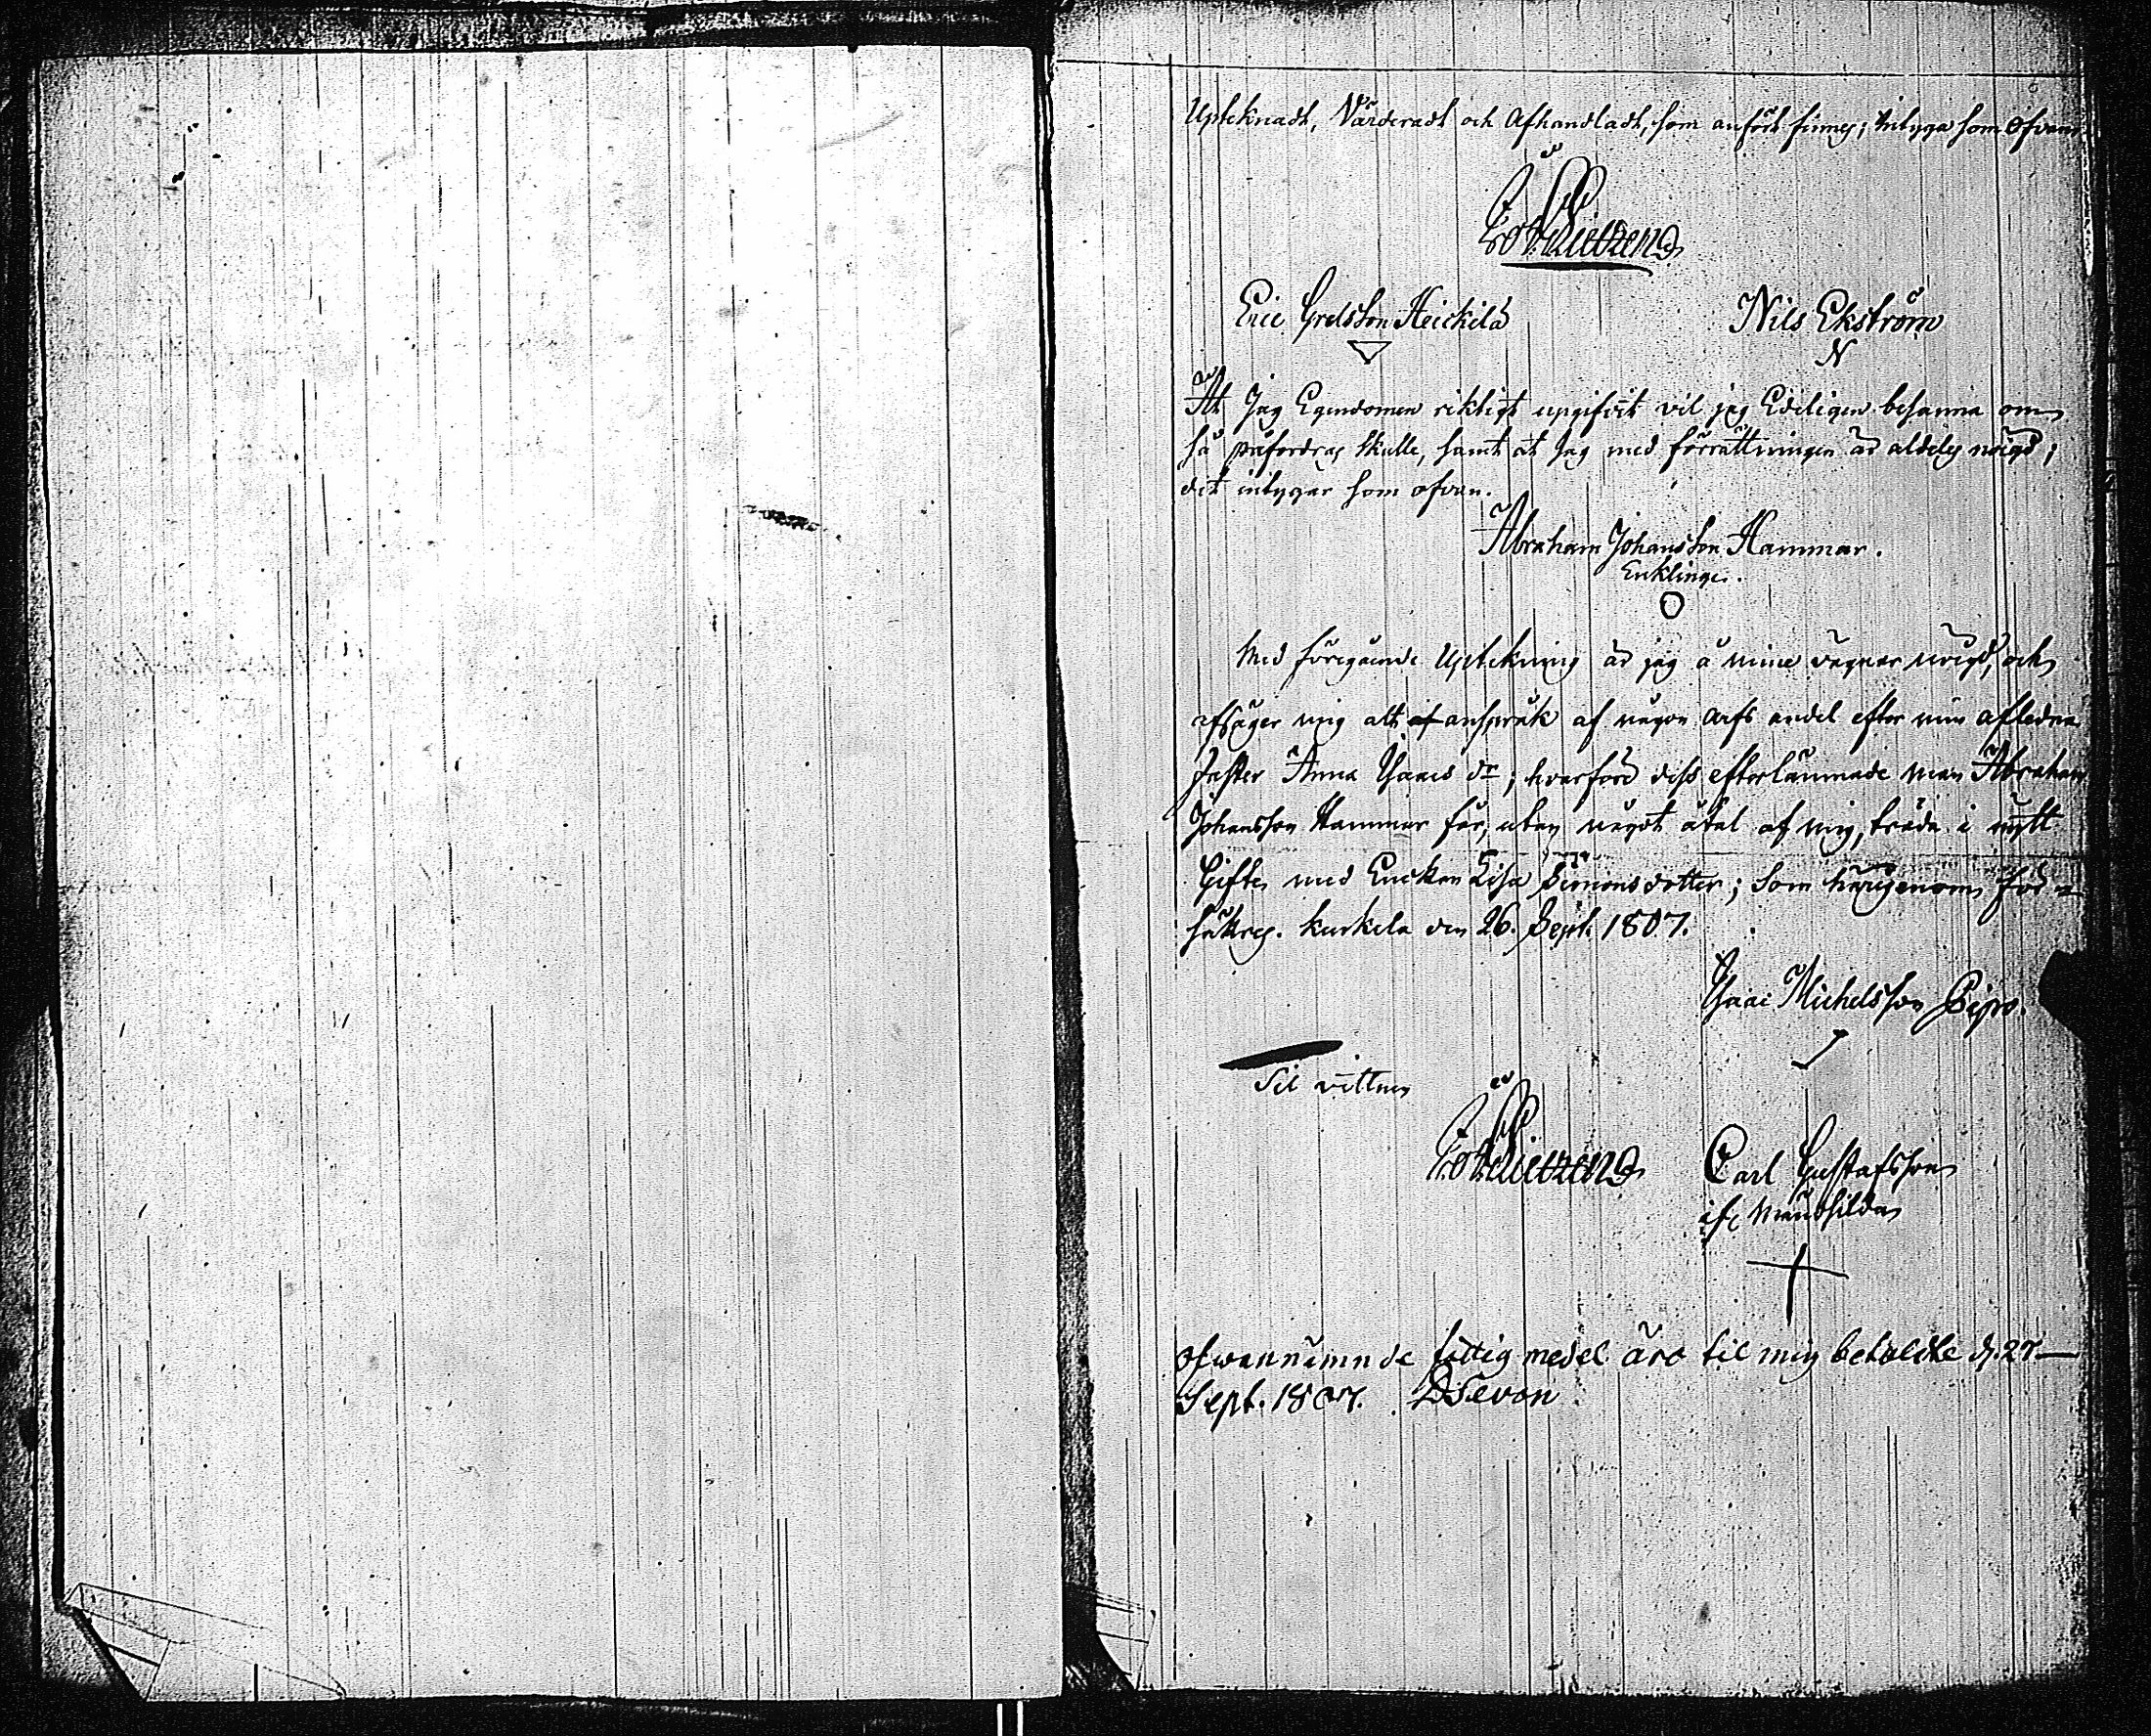 Upteknadt, Värderadt och Afhandladt, som anfördt finnes; intyga som ofvan
Eric Grelsson Heickilä
Nils Ekström
N
At Jag Egendomen riktigt upgifvit vil jag Edeligen besanna om
så påfordras skulle, samt at Jag med förrättningen är aldeles nögd;
det intygar som ofvan.
Abraham Johansson Hammar.
Enkling.
Med föregående Uptekning är jag å mine vägnar nögd, och
afsäger mig alt af anspråk af någon arfs andel efter min afledna
faster Anna Isaacs dr; hvarföre dess efterlämnade man Abraham
Johansson Hammar får, utan något åtal af mig, träda i nytt
Gifte med Enckan Lisa Simonsdotter; som härigenom för-
säkras. Kurkela den 26. Sept. 1807.
Isaac Michelsson
Til vittne
Carl Gustafsson
ofwannämnde fattig medel äro til mig betaldte d. 27
Sept. 1807. DSevon